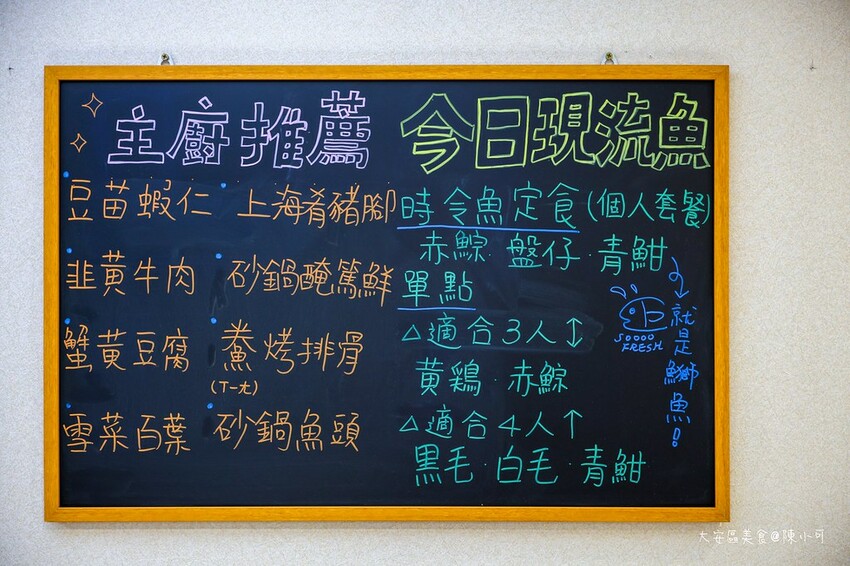 主廚推薦
豆苗蝦仁
上海肴豬腳
韭黃牛肉
砂鍋醃篤鮮
蟹黃豆腐
鯗烤排骨
(ㄒㄧㄤ)
雪菜百葉
砂鍋魚頭
今日現流魚
時令魚定食(個人套餐)
赤鯮.盤仔.青魽
單點
△適合3人↕
黃鶏.赤鯮
△適合4人↑
黑毛.白毛.青魽
就是鰤魚!
SOOOO
FRESH
大安區美食@陳小可